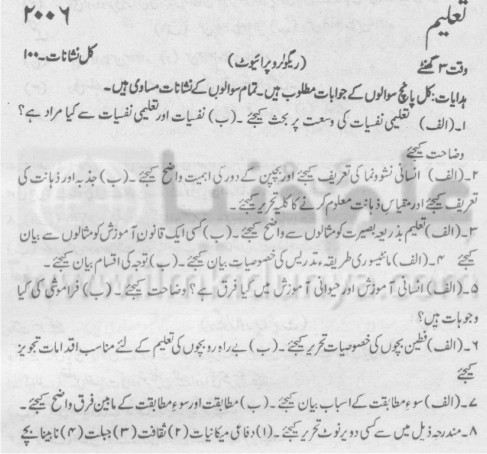 تعلیم
۲۰۰۶
وقت ۳ گھنٹے (ریگولر و پرائیوٹ) کل نشانات۔۱۰۰
ہدایات: کل پانچ سوالوں کے جوابات مطلوب ہیں۔ تمام سوالوں کے نشانات مساوی ہیں۔
۱۔ (الف) تعلیمی نفسیات کی وسعت پر بحث کیجئے۔ (ب) نفسیات اور تعلیمی نفسیات سے کیا مراد ہے؟
وضاحت کیجئے
۲۔ (الف) انسانی نشوونما کی تعریف کیجئے اور بچپن کے دور کی اہمیت واضح کیجئے۔ (ب) جذبہ اور ذہانت کی
تعریف کیجئے اور مقیاس ذہانت معلوم کرنے کا کلیہ تحریر کیجئے۔
۳۔ (الف) تعلیم بذریعہ بصیرت کو مثالوں سے واضح کیجئے۔ (ب) کسی ایک قانونِ آموزش کو مثالوں سے بیان
کیجئے ۴۔ (الف) مانٹیسوری طریقہ تدریس کی خصوصیات بیان کیجئے۔ (ب) توجہ کی اقسام بیان کیجئے۔
۵۔ (الف) انسانی آموزش اور حیوانی آموزش میں کیا فرق ہے؟ وضاحت کیجئے۔ (ب) فراموشی کی کیا
وجوہات ہیں؟
۶۔ (الف) فطین بچوں کی خصوصیات تحریر کیجئے۔ (ب) بے راہ رو بچوں کی تعلیم کے لئے مناسب اقدامات تجویز
کیجئے
۷۔ (الف) سوءِ مطابقت کے اسباب بیان کیجئے۔ (ب) مطابقت اور سوءِ مطابقت کے مابین فرق واضح کیجئے۔
۸۔ مندرجہ ذیل میں سے کسی دو پر نوٹ تحریر کیجئے۔ (۱) دفاعی میکانیات (۲) ثقافت (۳) جبلت (۴) نابینا بچے